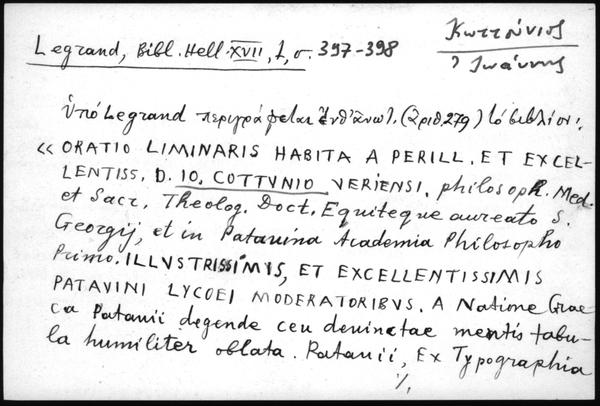 Legrand, Bibl. Hell. XVII, 1, σ. 397-398
Κωττούνιος
Ἰωάννης
Ὑπό Legrand περιγράφεται ἔνθ' ἀνωτ. (ἀριθ. 279) τό βιβλίον:
« ORATIO LIMINARIS HABITA A PERILL. ET EXCEL-
LENTISS. D. IO. COTTVNIO VERIENSI. philosoph. Med.
et Sacr. Theolog. Doct. Equiteque aureato S.
Georgij, et in Patauina Academia Philosopho
Primo. ILLVSTRISSIMIS, ET EXCELLENTISSIMIS
PATAVINI LYCOEI MODERATORIBVS. A Natione Grae
ca Patauii degende ceu deuinctae mentis tabu-
la humiliter oblata. Patauii, Ex Typographia
./.